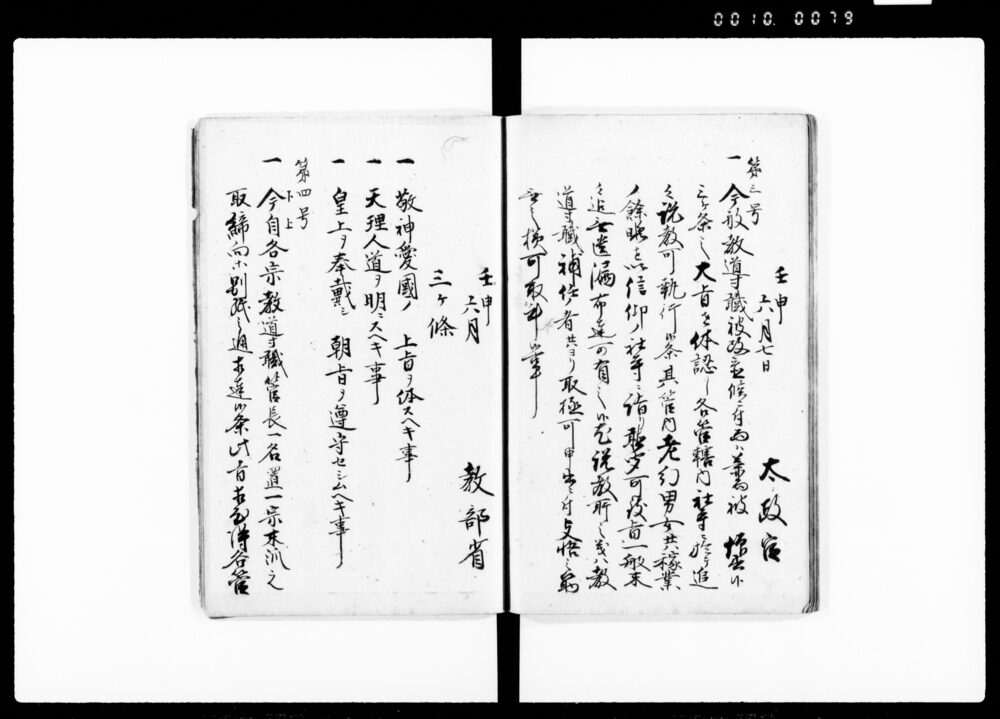 0010.0079
壬申
六月七日
太政官
第三号
一 今般教導職被改置候ニ付而ハ兼而被 標出候
三ヶ条之大旨ヲ体認シ各管轄内社寺ニ於テ追
々説教可執行候条其管内老幼男女共稼業
ノ餘暇 信仰ノ社寺ニ詣リ聴聞可致旨一般末
々迄無遺漏布達可有之候尤説教所之義ハ教
導職補任者共ヨリ取極可申出ニ付
無之様可取計候事
壬申
六月
教部省
三ヶ條
一 敬神愛國ノ 上旨ヲ体スヘキ事
一 天理人道ヲ明ニスヘキ事
一 皇上ヲ奉戴シ 朝旨ヲ遵守セシムヘキ事
第四号
下上
一 今自各宗教導職管長一名置一宗末派之
取締向等別紙之通相達候条此旨相心得各管